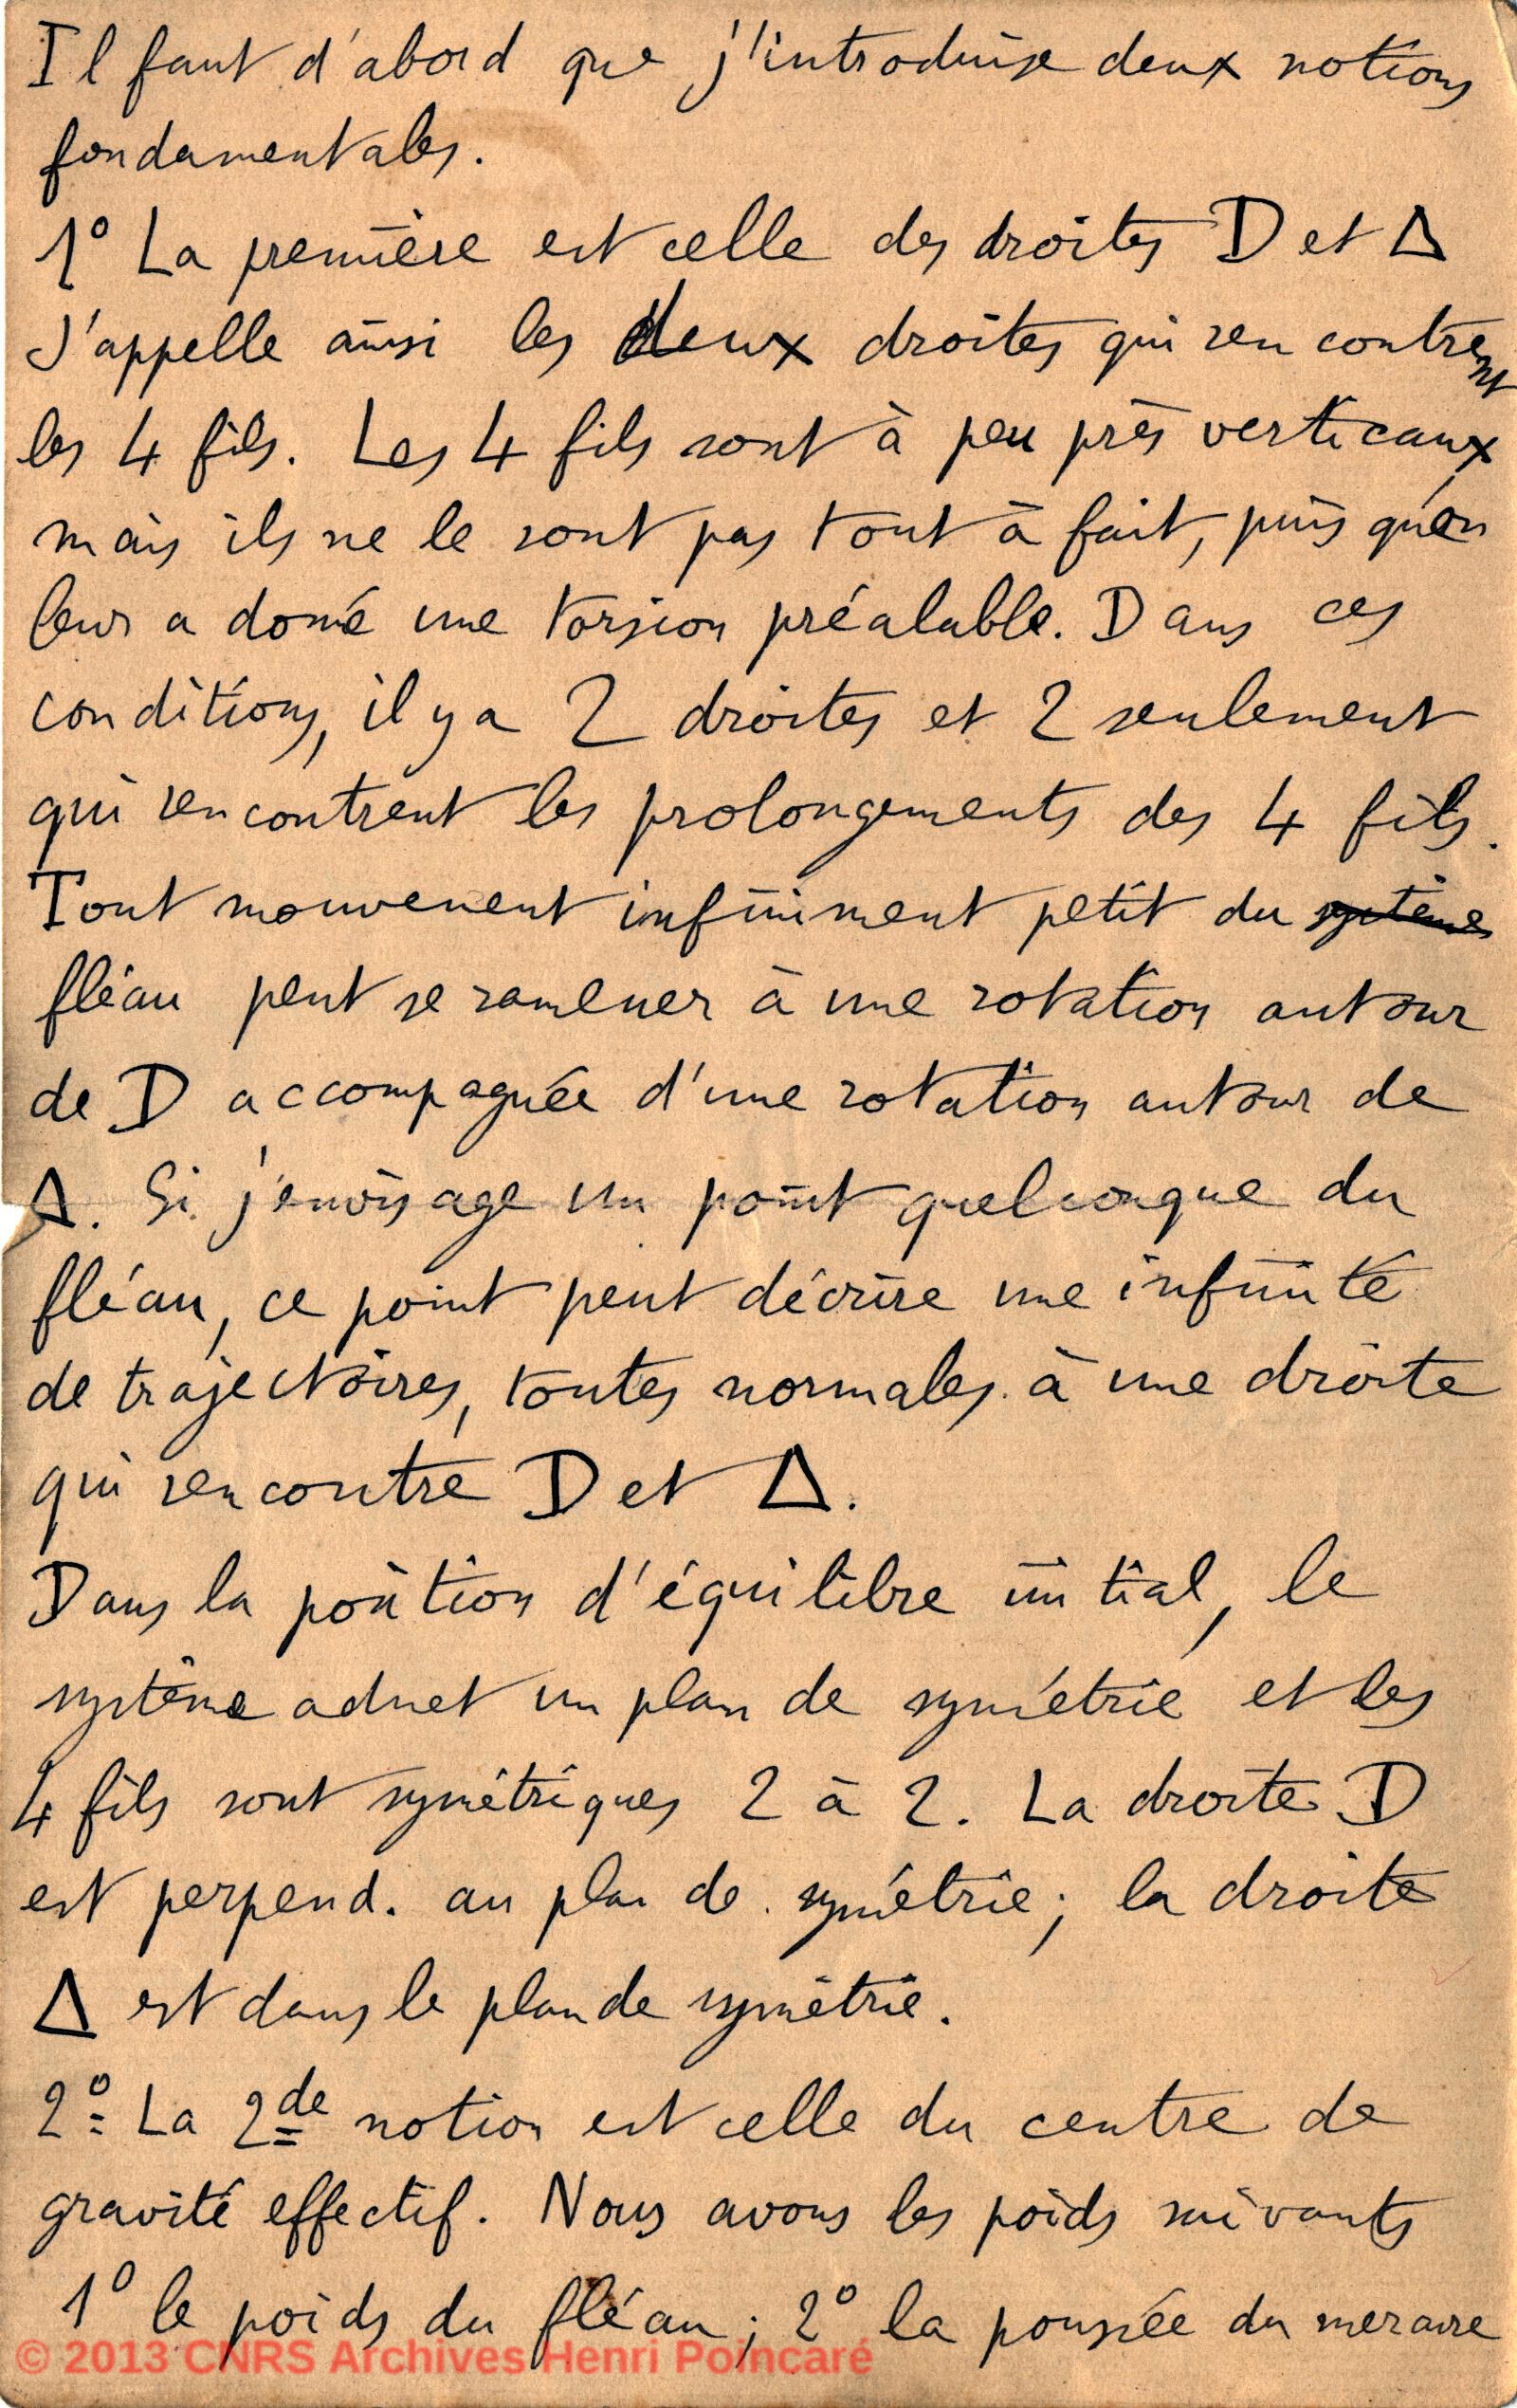 Il faut d'abord que j'introduise deux notions
fondamentales.
1º La première est celle des droites D et Δ
J'appelle ainsi les deux droites qui rencontrent
les 4 fils. Les 4 fils sont à peu près verticaux
mais ils ne le sont pas tout à fait, puis qu'on
leur a donné une torsion préalable. Dans ces
conditions, il y a 2 droites et 2 seulement
qui rencontrent les prolongements des 4 fils.
Tout mouvement infiniment petit du système
fléau peut se ramener à une rotation autour
de D accompagnée d'une rotation autour de
Δ. Si j'envisage un point quelconque du
fléau, ce point peut décrire une infinité
de trajectoires, toutes normales à une droite
qui rencontre D et Δ.
Dans la position d'équilibre initial, le
système admet un plan de symétrie et les
4 fils sont symétriques 2 à 2. La droite D
est perpend. au plan de symétrie; la droite
Δ est dans le plan de symétrie.
2º La 2de notion est celle du centre de
gravité effectif. Nous avons les poids suivants
1º le poids du fléau; 2º la poussée du mercure
© 2013 CNRS Archives Henri Poincaré